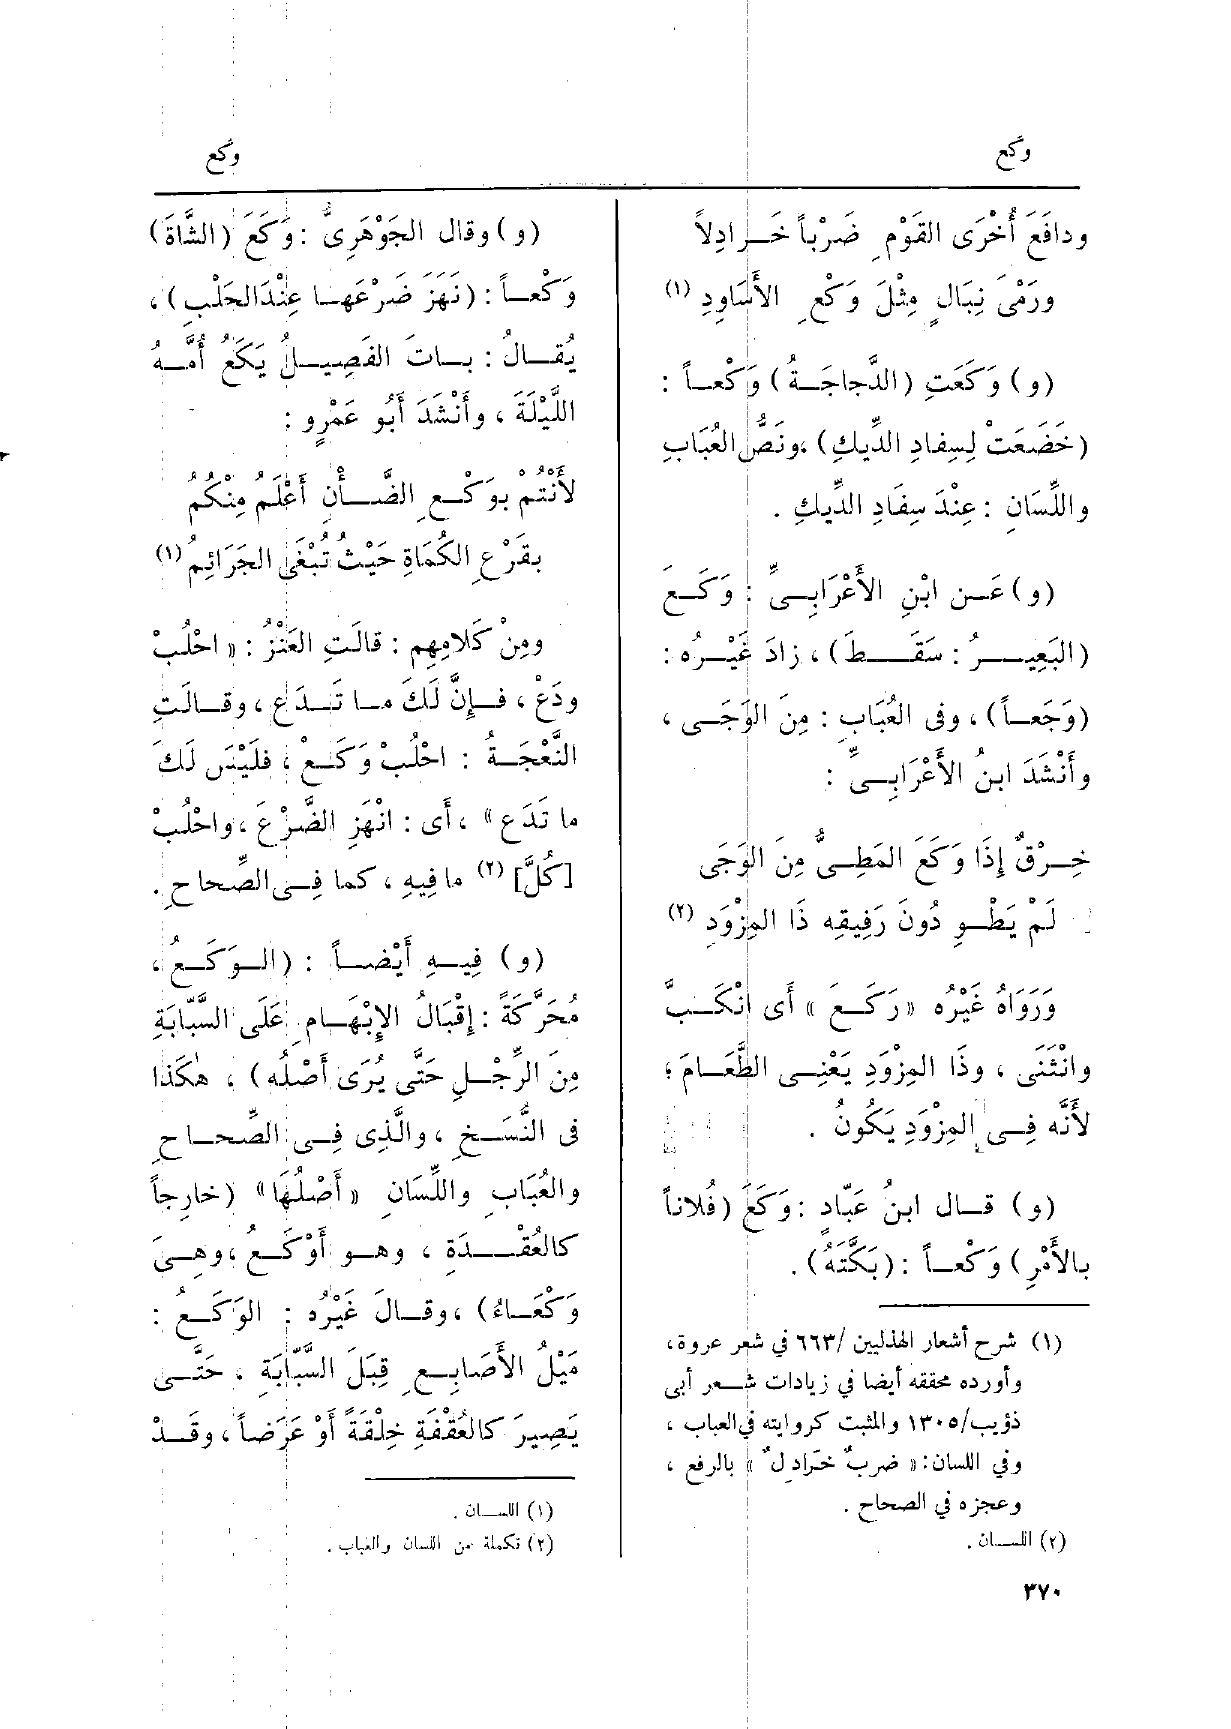 وكع
وكع
ودافَعَ أُخْرَى القَوْمِ ضَرْباً خَـرادِلاً
ورَمْىَ نِبَالٍ مِثْلَ وَكْعِ الأَسَاوِدِ (١)
(و) وَكَعَتِ (الدَّجاجَـةُ) وَكْعـاً :
(خَضَعَتْ لِسِفادِ الدِّيكِ) ،ونَصُّ العُبَابِ
واللِّسَانِ : عِنْدَ سِفَادِ الدِّيكِ .
(و) عَـن ابْنِ الأَعْرَابِـىِّ : وَكَـعَ
(البَعِيـرُ : سَقَـطَ) ، زادَ غَيْـرُه :
(وَجَعـاً) ، وفى العُبَابِ : مِنَ الوَجَـى ،
وأَنْشَدَ ابنُ الأَعْرَابِـىِّ :
خِـرْقٌ إِذَا وَكَعَ المَطِـىُّ مِنَ الوَجَى
لَمْ يَطْـوِ دُونَ رَفِيقِه ذَا المِزْوَدِ (٢)
وَرَوَاهُ غَيْرُه «رَكَـعَ» أَى انْكَـبَّ
وانْثَنَى ، وذَا المِزْوَدِ يَعْنِـى الطَّعَـامَ ؛
لأَنَّه فِـى المِزْوَدِ يَكُونُ .
(و) قـال ابنُ عَبّادٍ : وَكَعَ (فُلاناً
بالأَمْرِ) وَكْعـاً : (بَكَّتَهُ) .
(١) شرح أشعار الهذليين /٦٦٣ في شعر عروة،
وأورده محققه أيضا في زيادات شـعر أبى
ذؤيب/١٣٠٥ والمثبت كروايته في العباب ،
وفي اللسان: « ضربٌ خَرادِلٌ » بالرفع ،
وعجزه في الصحاح .
(٢) اللسـان .
٣٧٠
(و) وقال الجَوْهَرِىُّ : وَكَعَ (الشَّاةَ)
وَكْعـاً : (نَهَزَ ضَرْعَهـا عِنْدَ الحَلْبِ) ،
يُقـالُ : بـاتَ الفَصِيـلُ يَكَعُ أُمَّـهُ
اللَّيْلَةَ ، وأَنْشَدَ أَبُو عَمْرٍو :
لأَنْتُمْ بِوَكْـعِ الضَّـأْنِ أَعْلَمُ مِنْكُمُ
بقَرْعِ الكُمَاةِ حَيْثُ تُبْغَى الجَرَائِمُ (١)
ومِنْ كَلامِهِم : قالَتِ العَنْزُ : « احْلُبْ
ودَعْ ، فـإِنَّ لَكَ مـا تَـدَع ، وقـالَتِ
النَّعْجَـةُ : احْلُبْ وَكَـعْ ، فلَيْسَ لَكَ
ما تَدَع » ، أَى : انْهَزِ الضَّرْعَ ، واحْلُبْ
[كُلَّ] (٢) ما فِيهِ ، كما فِـى الصِّحاحِ .
(و) فِيـهِ أَيْضـاً : (الـوَكَـعُ ،
مُحَرَّكَةً : إِقْبَالُ الإِبْهَـامِ عَلَى السَّبّابَةِ
مِنَ الرِّجْـلِ حَتَّى يُرَى أَصْلُه) ، هٰكَذا
فى النُّسَـخِ ، والَّذِى فِـى الصِّحـاحِ
والعُبَابِ واللِّسَانِ « أَصْلُهَا» (خارِجاً
كالعُقْـدَةِ ، وهـو أَوْكَـعُ ، وهِـىَ
وَكْعَـاءُ) ، وقـالَ غَيْرُه : الوَكَـعُ :
مَيْلُ الأَصَابِـعِ قِبَلَ السَّبّابَةِ ، حَتَّـى
يَصِيرَ كالعُقْفَةِ خِلْقَةً أَوْ عَرَضاً ، وقَـدْ
(١) اللسـان .
(٢) تكملة من اللسان والعباب .